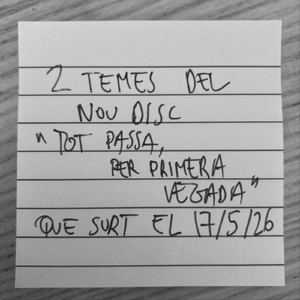 2 TEMES DEL
NOU DISC
"TOT PASSA,
PER PRIMERA
VEGADA"
QUE SURT EL 17/5/26